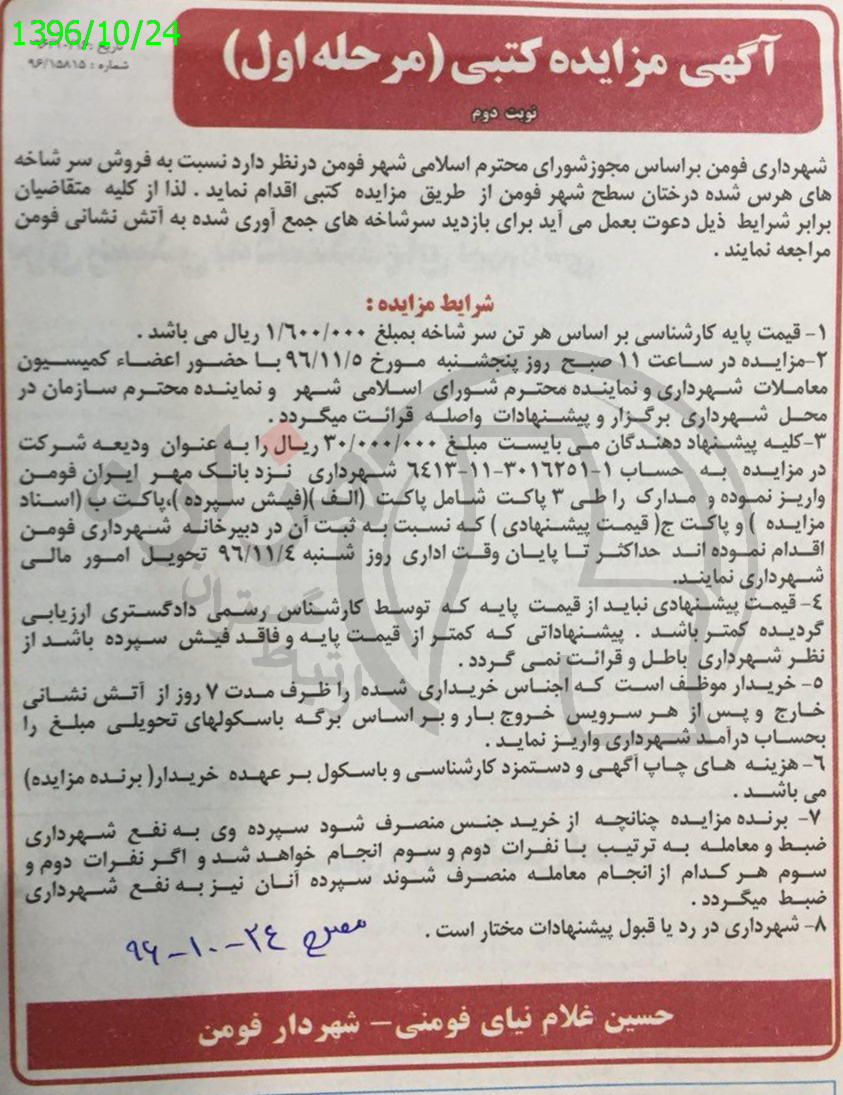 1396/10/24
شماره : ۹۶/۱۵۸۱۵
آگهی مزایده کتبی (مرحله اول)
نوبت دوم
شهرداری فومن براساس مجوزشورای محترم اسلامی شهر فومن درنظر دارد نسبت به فروش سر شاخه
های هرس شده درختان سطح شهر فومن از طریق مزایده کتبی اقدام نماید . لذا از کلیه متقاضیان
برابر شرایط ذیل دعوت بعمل می آید برای بازدید سرشاخه های جمع آوری شده به آتش نشانی فومن
مراجعه نمایند .
شرایط مزایده :
۱- قیمت پایه کارشناسی بر اساس هر تن سر شاخه بمبلغ ۱/۶۰۰/۰۰۰ ریال می باشد .
۲-مزایده در ساعت ۱۱ صبح روز پنجشنبه مورخ ۹۶/۱۱/۵ با حضور اعضاء کمیسیون
معاملات شهرداری و نماینده محترم شورای اسلامی شهر و نماینده محترم سازمان در
محل شهرداری برگزار و پیشنهادات واصله قرائت میگردد .
۳-کلیه پیشنهاد دهندگان می بایست مبلغ ۳۰/۰۰۰/۰۰۰ ریال را به عنوان ودیعه شرکت
در مزایده به حساب ۱-۳۰۱۶۲۵۱-۱۱-۶۴۱۳ شهرداری نزد بانک مهر ایران فومن
واریز نموده و مدارک را طی ۳ پاکت شامل پاکت (الف )(فیش سپرده )،پاکت ب (اسناد
مزایده ) و پاکت ج( قیمت پیشنهادی ) که نسبت به ثبت آن در دبیرخانه شهرداری فومن
اقدام نموده اند حداکثر تا پایان وقت اداری روز شنبه ۹۶/۱۱/۴ تحویل امور مالی
شهرداری نمایند.
۴- قیمت پیشنهادی نباید از قیمت پایه که توسط کارشناس رسمی دادگستری ارزیابی
گردیده کمتر باشد . پیشنهاداتی که کمتر از قیمت پایه و فاقد فیش سپرده باشد از
نظر شهرداری باطل و قرائت نمی گردد .
۵- خریدار موظف است که اجناس خریداری شده را ظرف مدت ۷ روز از آتش نشانی
خارج و پس از هر سرویس خروج بار و بر اساس برگه باسکولهای تحویلی مبلغ را
بحساب درآمد شهرداری واریز نماید .
۶- هزینه های چاپ آگهی و دستمزد کارشناسی و باسکول بر عهده خریدار( برنده مزایده)
می باشد .
۷- برنده مزایده چنانچه از خرید جنس منصرف شود سپرده وی به نفع شهرداری
ضبط و معامله به ترتیب با نفرات دوم و سوم انجام خواهد شد و اگر نفرات دوم و
سوم هر کدام از انجام معامله منصرف شوند سپرده آنان نیز به نفع شهرداری
ضبط میگردد .
۸- شهرداری در رد یا قبول پیشنهادات مختار است .
۹۶-۱۰-۲۴
حسین غلام نیای فومنی- شهردار فومن